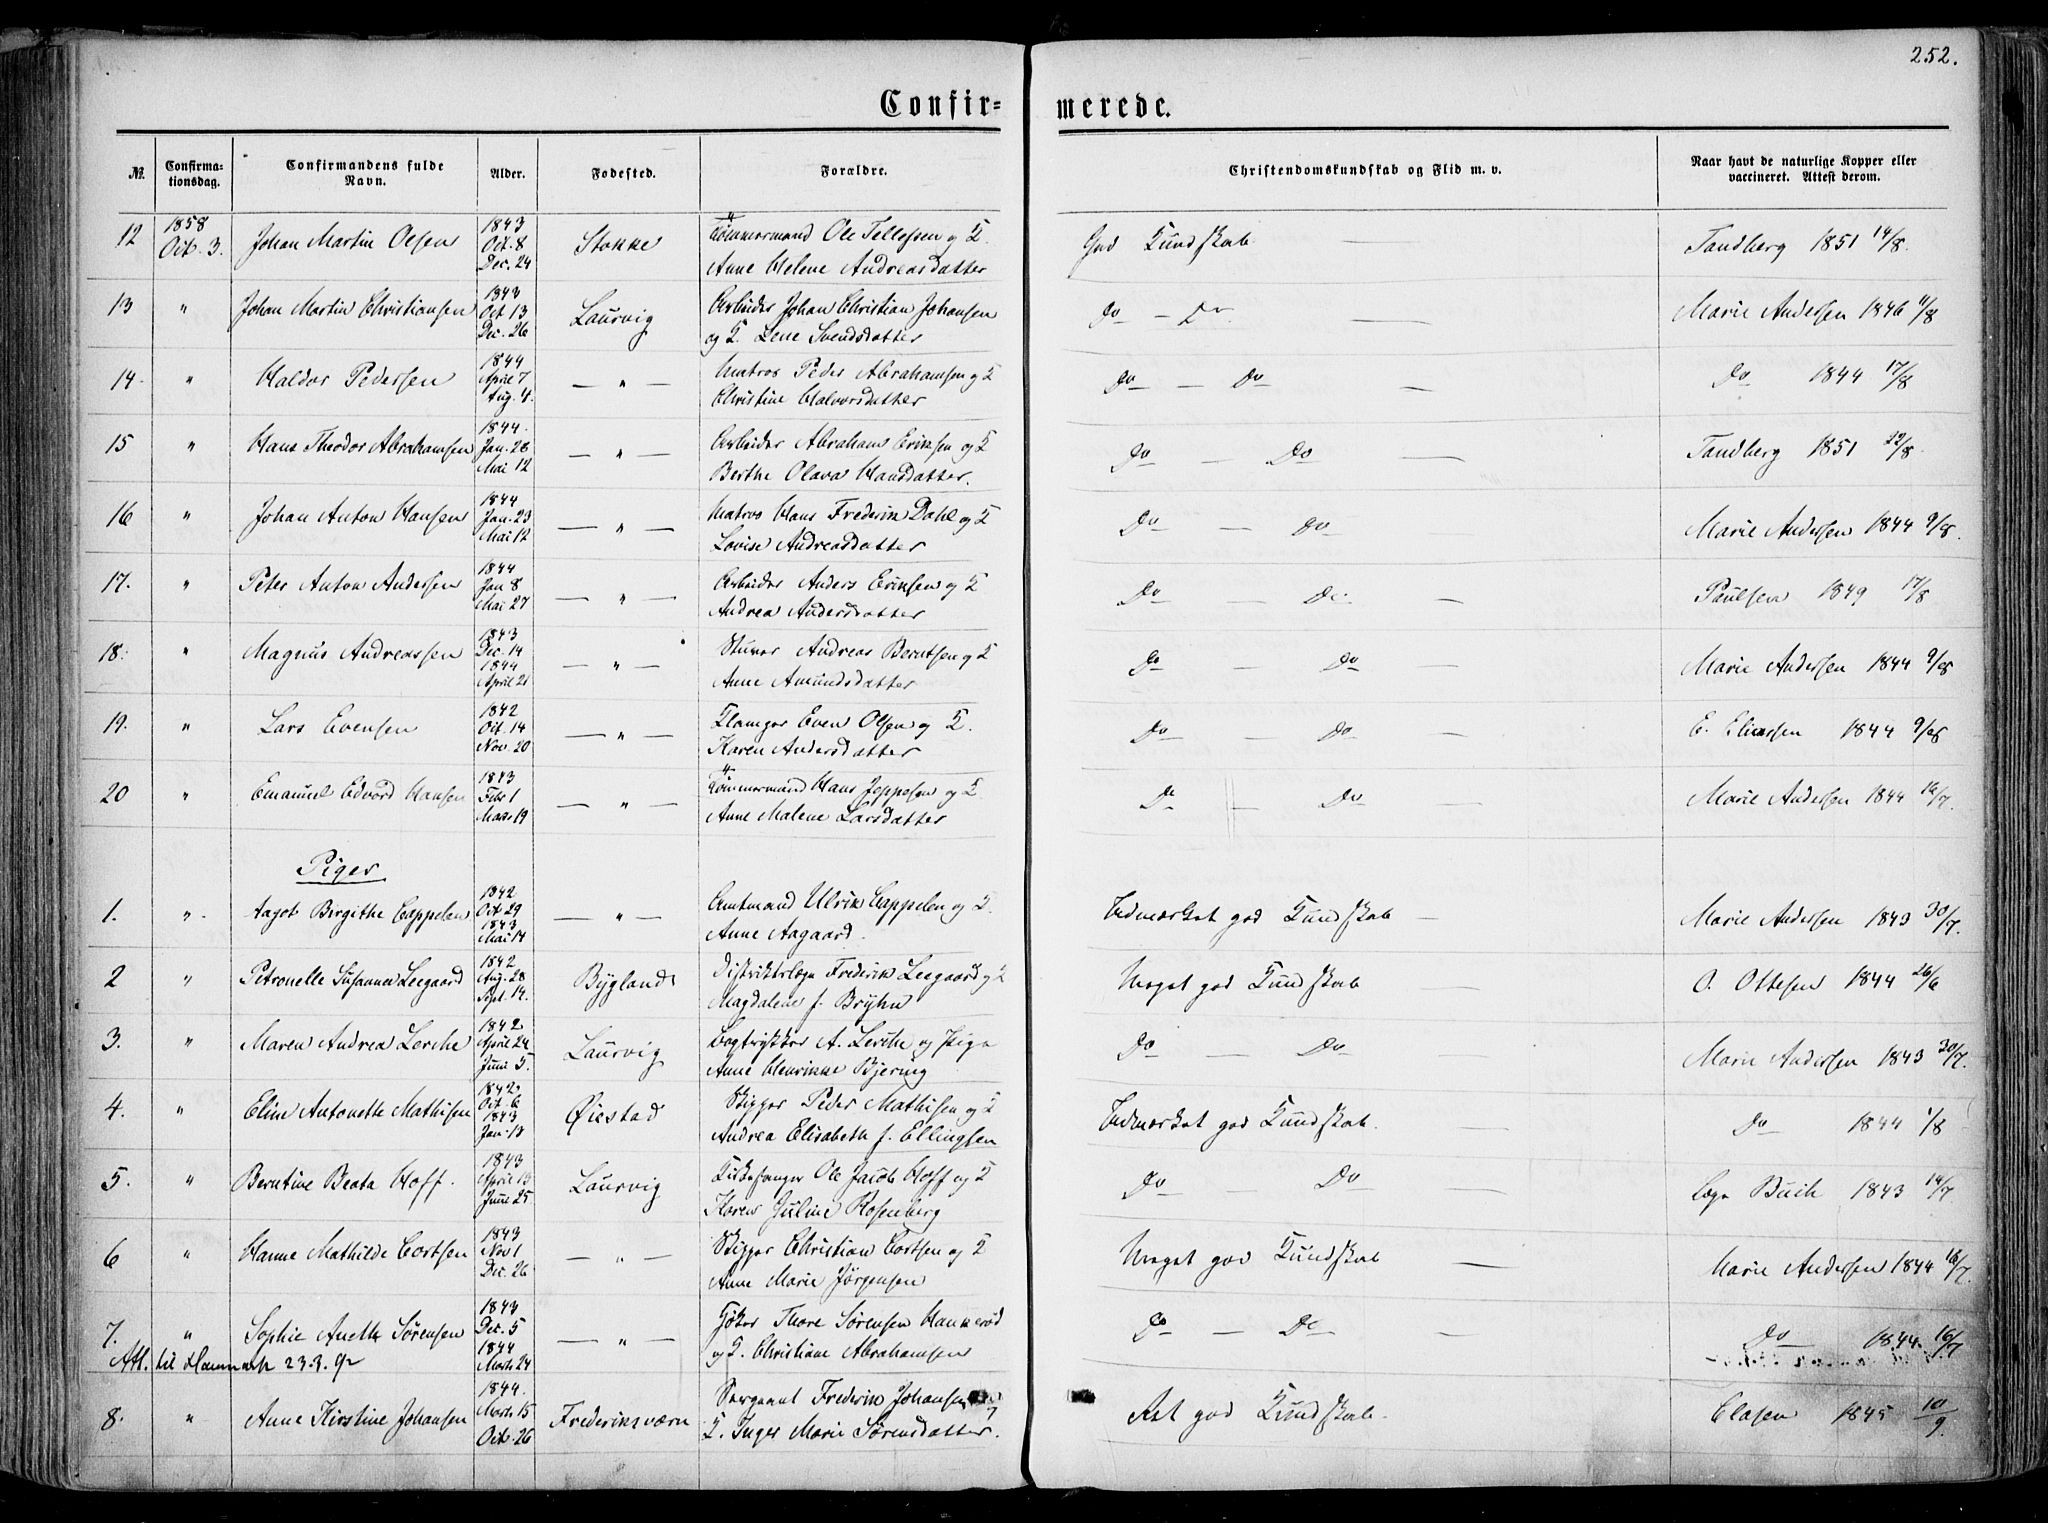 252.
Confir- merede.
No. Confirmationsdag. Confirmandens fulde Navn. Alder. Fodested. Forældre. Christendomskundskab og Flid m. v. Naar havt de naturlige Kopper eller vaccineret. Attest derom.
12 1858 Oct. 3. Johan Martin Olsen 1843 Oct. 8 Dec. 24 Stokke Tömmermand Ole Tellefsen og K. God Kundskab — Tandberg 1851 14/8.
Anne Helene Andreasdatter
13 " Johan Martin Christiansen 1843 Oct 13 Dec. 26 Laurvig Arbeider Johan Christian Johansen Do — Do — Marie Andersen 1846 11/8
og K. Lene Svendsdatter
14. " Haldor Pedersen 1844 April 7 Aug. 4. — " — Matros Peder Abrahamsen og K Do — Do — Do 1844 17/8
Christine Halvorsdatter
15 " Hans Theodor Abrahamsen 1844. Jan. 28 Mai 12 — " — Arbeider Abraham Eriksen og K Do — Do — Tandberg 1851 22/8.
Berthe Olava Hansdatter.
16 " Johan Anton Hansen 1844 Jan. 23 Mai 12 — " — Matros Hans Frederik Dahl og K Do — Do Marie Andersen 1844 9/8.
Lovise Andreasdatter
17. " Peter Anton Andersen 1844 Jan 8 Mai 27 — " — Arbeider Anders Eriksen og K Do — Do. — Paulsen 1849 17/8
Andrea Andersdatter
18. " Magnus Andreassen 1843 Dec. 14 1844 April 21 — " — Stuver Andreas Berntsen og K Do — Do — Marie Andersen 1844 9/8
Anne Amundsdatter
19. " Lars Evensen 1842 Oct. 14 Nov. 20 — " — Klamper Even Olsen og K. Do — Do — E. Eliassen 1844 9/8
Karen Andersdatter
20 " Emanuel Edvard Hansen 1843 Febr 1 Mars 19 — " — Tömmermand Hans Jeppesen og K. Do — Do — Marie Andersen 1844 16/7.
Anne Malene Larsdatter
Piger
1. " Aagot Birgithe Cappelen 1842 Oct. 29 1843 Mai 14 — " — Amtmand Ulrik Cappelen og K. Udmærket god Kundskab — Marie Andersen 1843 30/7.
Anne Aagaard.
2 " Petronelle Susanne Leegaard 1842 Aug. 28 Sept. 14. Bygland Distriktslæge Frederik Leegaard og K Meget god Kundskab — O. Ottesen 1844 26/6
Magdalene f. Bryhn
3. " Maren Andrea Lerche 1842 April 24 Juni 5. Laurvig Bogtrykker A. Lerche og Pige Do — Do — Marie Andersen 1843 30/7.
Anne Henrikke Bjering
4. " Elise Antonette Mathisen 1842 Oct. 6 1843 Jan. 13 Øiestad Skipper Peder Mathisen og K Udmærket god Kundskab. — Do 1844 1/8
Andrea Elisabeth f. Ellingsen
5. " Berntine Beata Hoff. 1843 April 13 Juni 25 Laurvig Ole Jacob Hoff og K Do — Do — Læge Buch 1843 14/7
Karen Juline Rosenberg
6 " Hanne Mathilde Cortsen 1843 Nov 1 Dec. 26 — " — Skipper Christian Cortsen og K Meget god Kundskab — Marie Andersen 1844 16/7.
Anne Marie Jørgensen
7. " Sophie Aneth Sörensen 1843 Dec. 5 1844 Marts 24 — " — Thore Sörensen Hankeröd Do — Do — Do 1844. 16/7
Att. til 23.3.92 og K. Christiane Abrahamsen
8. " Anne Kirstine Johansen 1844. Marts 15 Oct. 26 Frederiksværn Sergeant Frederik Johansen og Ret god Kundskab. Clasen 1845 10/9.
K. Inger Marie Sörensdatter.